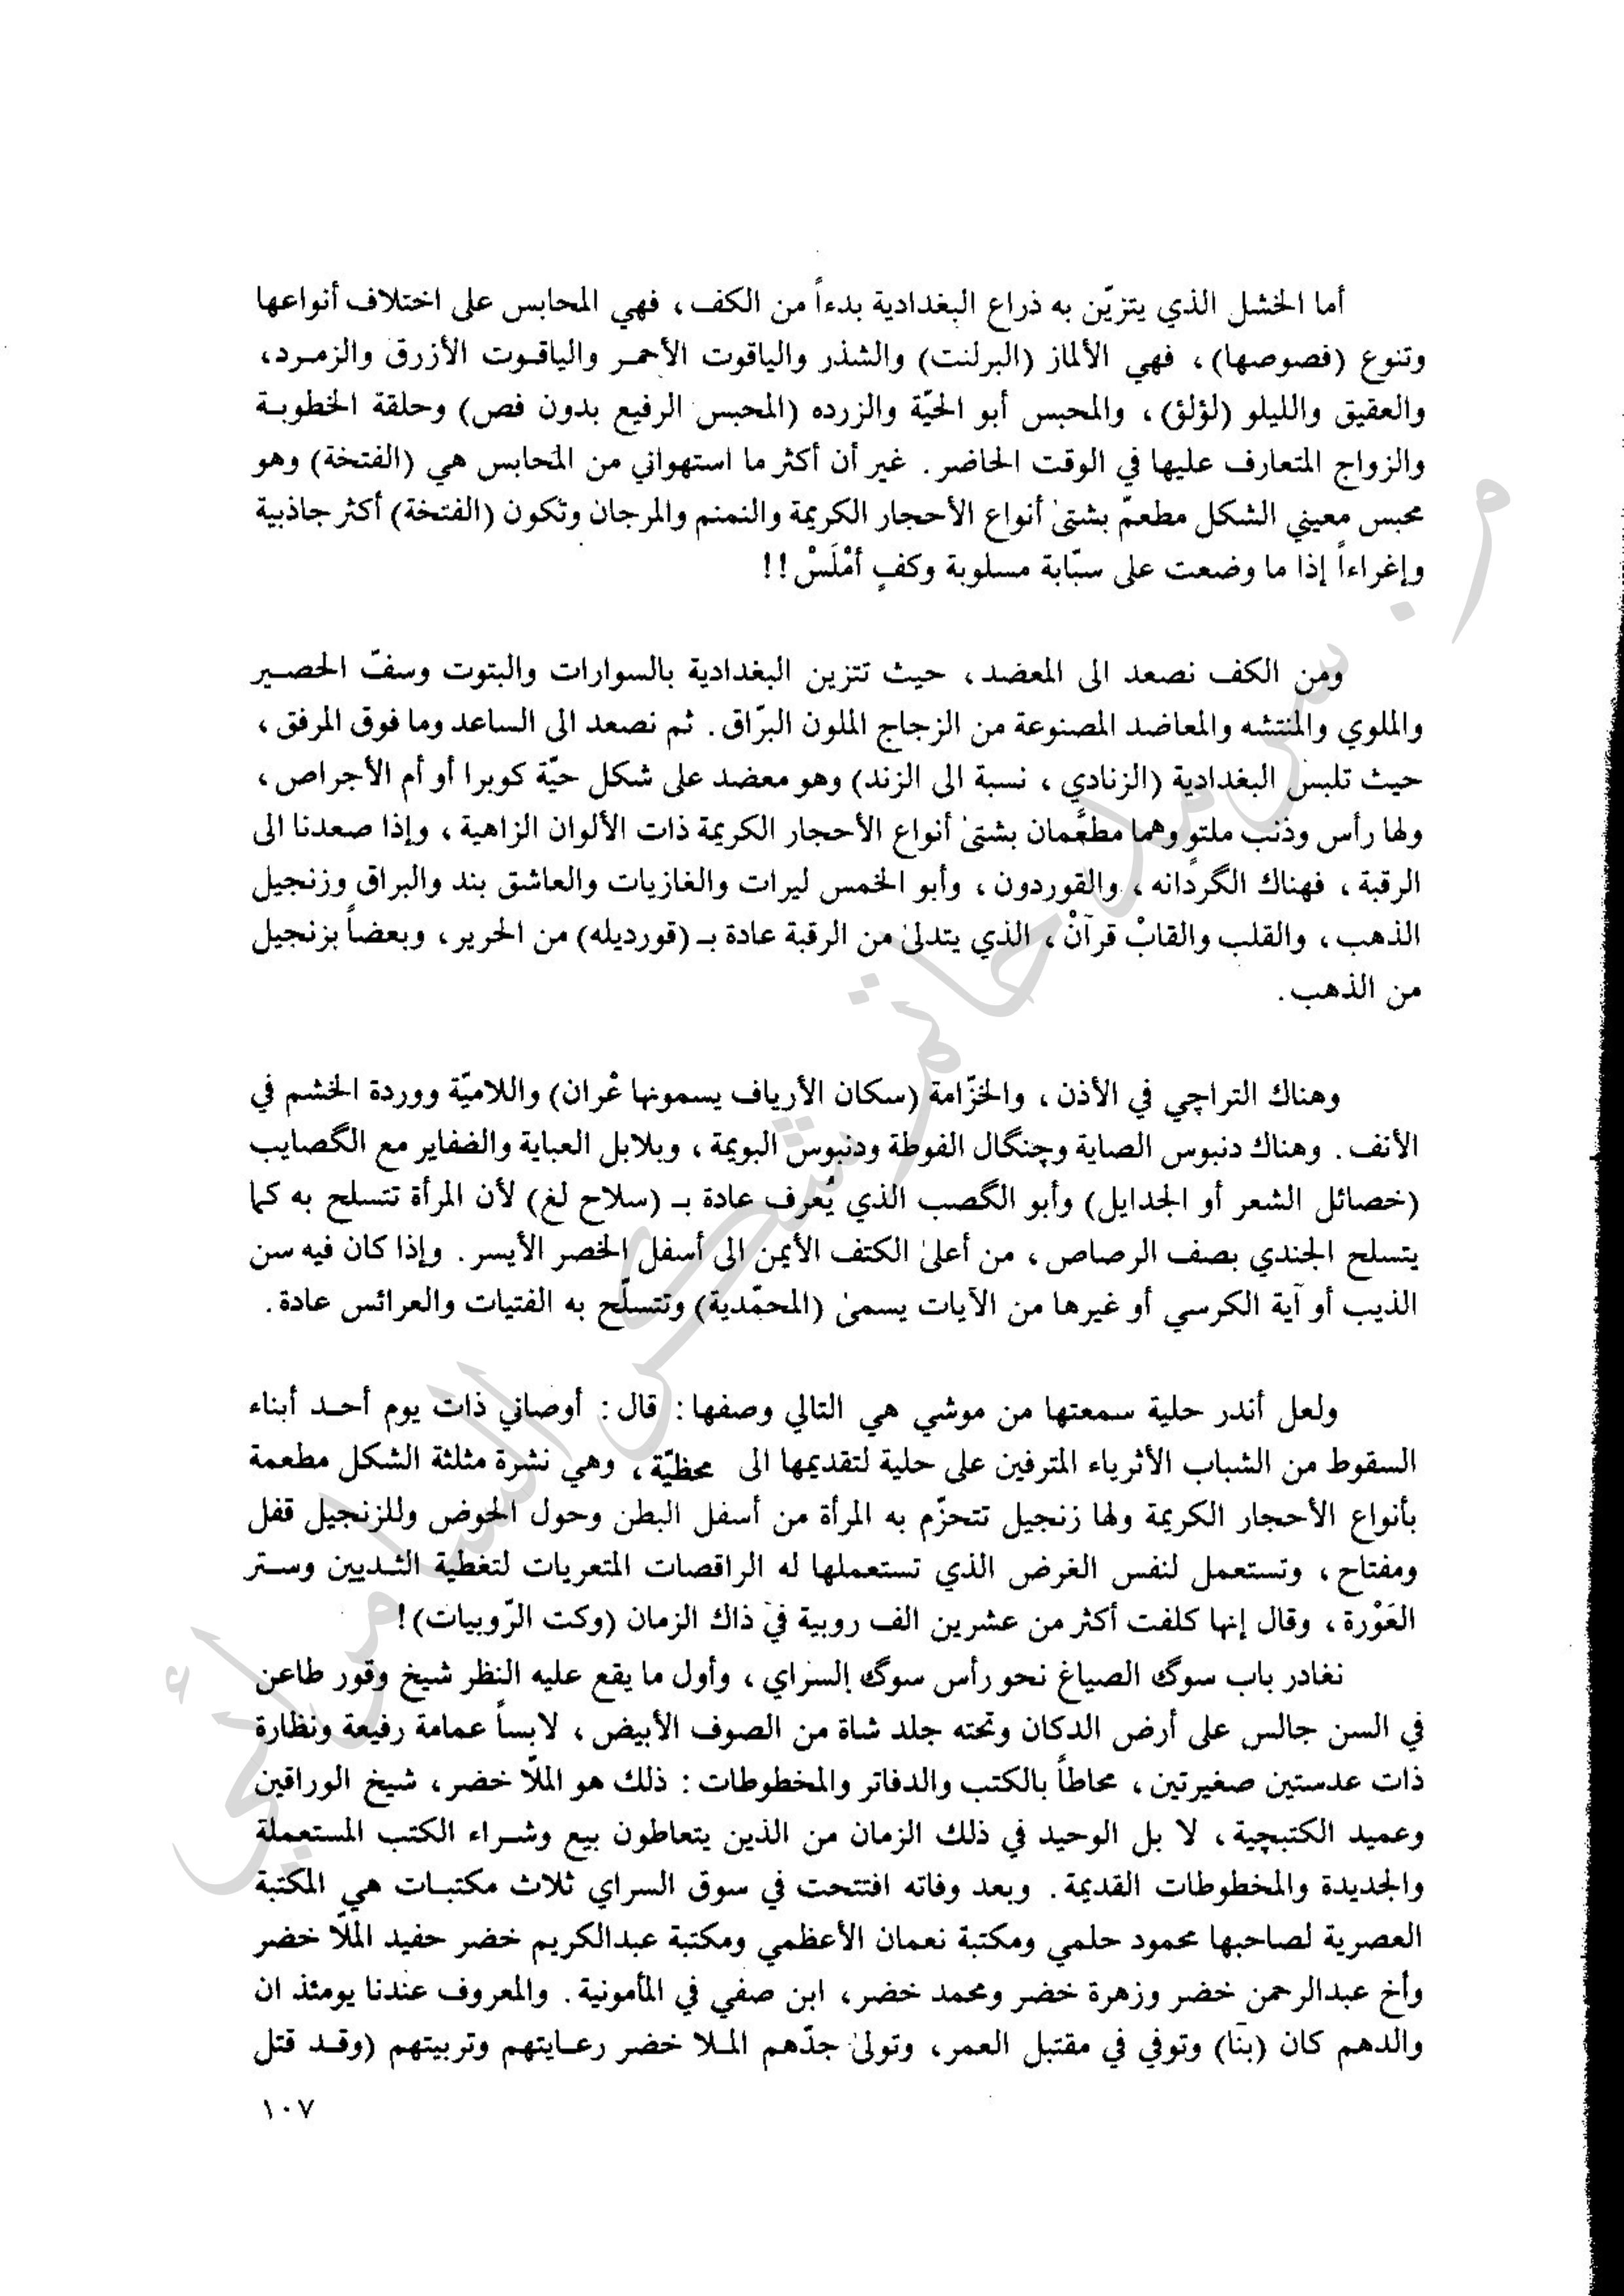 أما الخشل الذي يتزيّن به ذراع البغدادية بدءاً من الكف، فهي المحابس على اختلاف أنواعها
وتنوع (فصوصها)، فهي الألماز (البرلنت) والشذر والياقوت الأحمر والياقوت الأزرق والزمرد،
والعقيق والليلو (لؤلؤ)، والمحبس أبو الحيّة والزرده (المحبس الرفيع بدون فص) وحلقة الخطوبة
والزواج المتعارف عليها في الوقت الحاضر. غير أن أكثر ما استهواني من المحابس هي (الفتخة) وهو
محبس معيني الشكل مطعمّ بشتىٰ أنواع الأحجار الكريمة والنمنم والمرجان وتكون (الفتخة) أكثر جاذبية
وإغراءاً إذا ما وضعت على سبّابة مسلوبة وكفٍ أمْلَسْ!!
ومن الكف نصعد الى المعضد، حيث تتزين البغدادية بالسوارات والبتوت وسفّ الحصير
والملوي والمنتشه والمعاضد المصنوعة من الزجاج الملون البرّاق. ثم نصعد الى الساعد وما فوق المرفق،
حيث تلبس البغدادية (الزنادي، نسبة الى الزند) وهو معضد على شكل حيّة كوبرا أو أم الأجراص،
ولها رأس وذنب ملتوٍ وهما مطعَّمان بشتىٰ أنواع الأحجار الكريمة ذات الألوان الزاهية، وإذا صعدنا الى
الرقبة، فهناك الگردانه، والقوردون، وأبو الخمس ليرات والغازيات والعاشق بند والبراق وزنجيل
الذهب، والقلب والقابْ قرآنْ، الذي يتدلىٰ من الرقبة عادة بـ (قورديله) من الحرير، وبعضاً بزنجيل
من الذهب.
وهناك التراچي في الأذن، والخزّامة (سكان الأرياف يسمونها عْران) واللاميّة ووردة الخشم في
الأنف. وهناك دنبوس الصاية وچنگال الفوطة ودنبوس البويمة، وبلابل العباية والضفاير مع الگصايب
(خصائل الشعر أو الجدايل) وأبو الگصب الذي يُعرف عادة بـ (سلاح لغ) لأن المرأة تتسلح به كما
يتسلح الجندي بصف الرصاص، من أعلىٰ الكتف الأيمن الى أسفل الخصر الأيسر. وإذا كان فيه سن
الذيب أو آية الكرسي أو غيرها من الآيات يسمىٰ (المحمّدية) وتتسلّح به الفتيات والعرائس عادة.
ولعل أندر حلية سمعتها من موشي هي التالي وصفها: قال: أوصاني ذات يوم أحد أبناء
السقوط من الشباب الأثرياء المترفين على حلية لتقديمها الى محظيّة، وهي نشرة مثلثة الشكل مطعمة
بأنواع الأحجار الكريمة ولها زنجيل تتحزّم به المرأة من أسفل البطن وحول الحوض وللزنجيل قفل
ومفتاح، وتستعمل لنفس الغرض الذي تستعملها له الراقصات المتعريات لتغطية الثديين وستر
العَوْرة، وقال إنها كلفت أكثر من عشرين الف روبية في ذاك الزمان (وكت الرّوبيات)!
نغادر باب سوگ الصياغ نحو رأس سوگ إلسراي، وأول ما يقع عليه النظر شيخ وقور طاعن
في السن جالس على أرض الدكان وتحته جلد شاة من الصوف الأبيض، لابساً عمامة رفيعة ونظارة
ذات عدستين صغيرتين، محاطاً بالكتب والدفاتر والمخطوطات: ذلك هو الملّا خضر، شيخ الوراقين
وعميد الكتبچية، لا بل الوحيد في ذلك الزمان من الذين يتعاطون بيع وشراء الكتب المستعملة
والجديدة والمخطوطات القديمة. وبعد وفاته افتتحت في سوق السراي ثلاث مكتبات هي المكتبة
العصرية لصاحبها محمود حلمي ومكتبة نعمان الأعظمي ومكتبة عبدالكريم خضر حفيد الملّا خضر
وأخ عبدالرحمن خضر وزهرة خضر ومحمد خضر، ابن صفي في المأمونية. والمعروف عندنا يومئذ ان
والدهم كان (بنّا) وتوفي في مقتبل العمر، وتولىٰ جدّهم الملا خضر رعايتهم وتربيتهم (وقد قتل
١٠٧